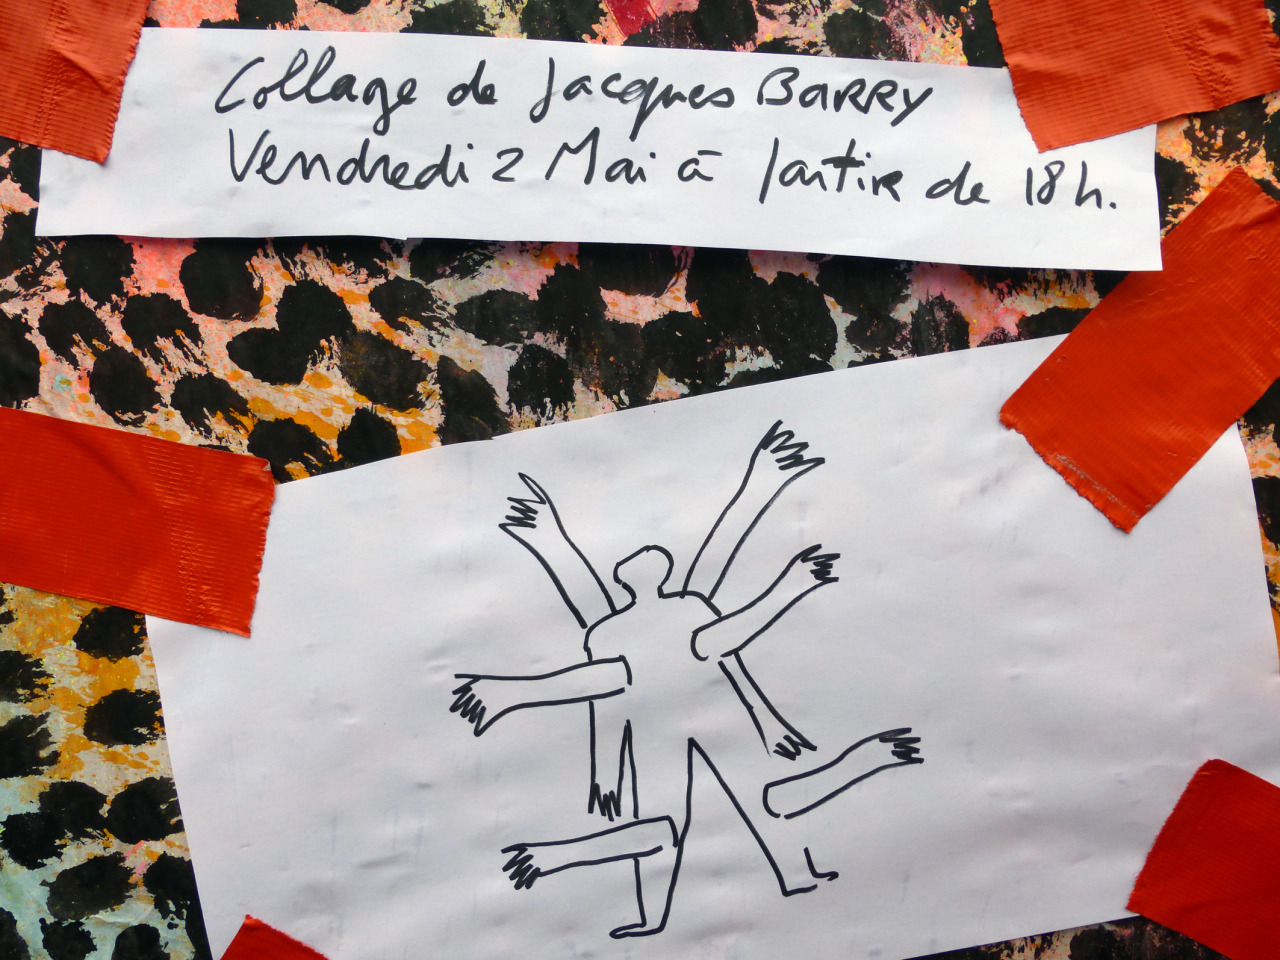 Collage de Jacques BARRY
Vendredi 2 Mai à partir de 18h.